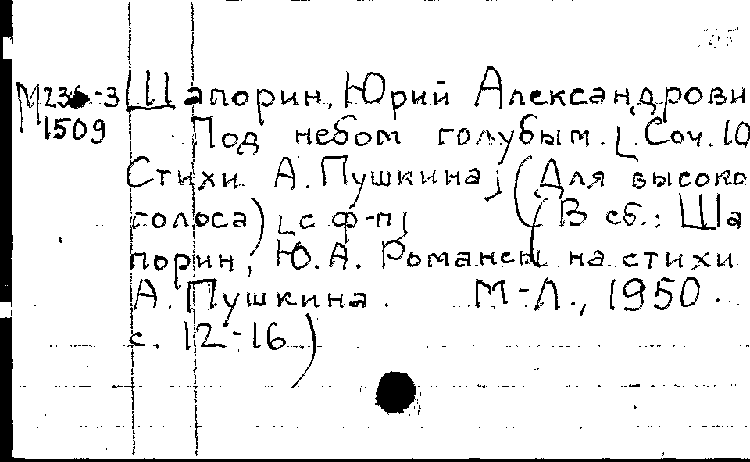 Шапорин, Юрий Александрови
М 1509
Под небом голубым. [Соч. 10
Стихи А. Пушкина] (Для высоко
голоса) [с ф-п] (В сб.: Ша
порин, Ю.А. Романсы на стихи
А. Пушкина. М-Л., 1950.
с. 12-16)